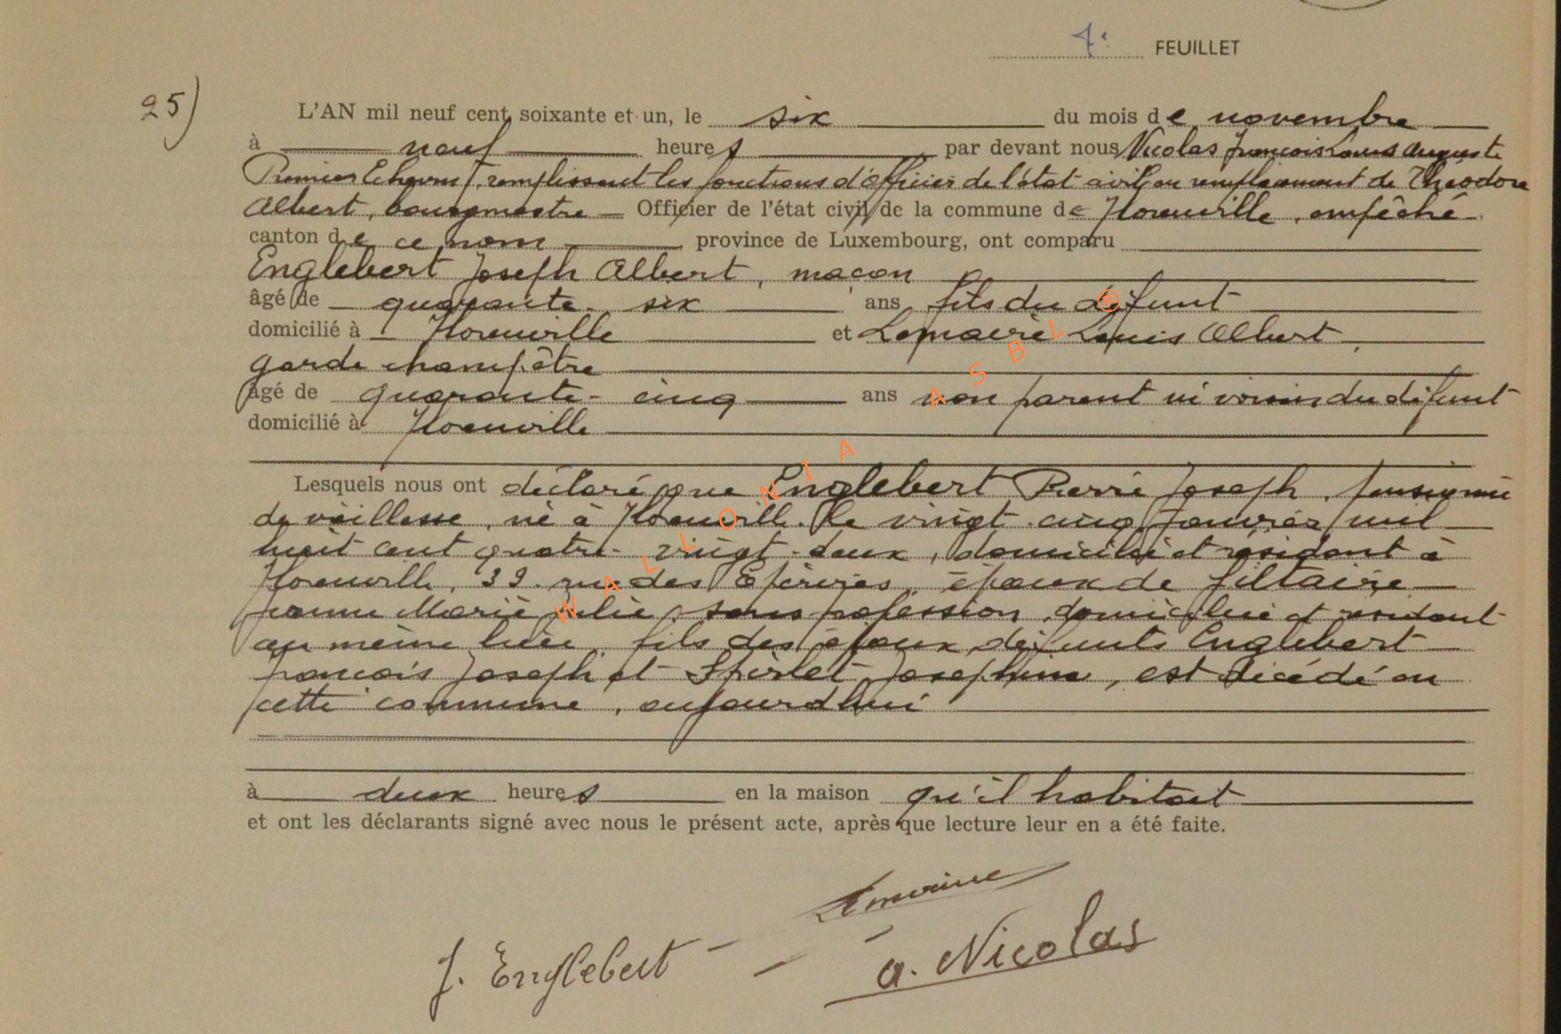 7e FEUILLET
25)
L'AN mil neuf cent soixante et un, le six du mois de novembre
à neuf heures par devant nous Nicolas François Louis Auguste
Premier Echevin, remplissant les fonctions d'Officier de l'état civil en remplacement de Théodore
Albert, bourgmestre Officier de l'état civil de la commune de Florenville, empêché
canton de ce nom province de Luxembourg, ont comparu
Englebert Joseph Albert, maçon
âgé de quarante-six ans fils du défunt
domicilié à Florenville et Lemaire Louis Albert,
garde champêtre
âgé de quarante-cinq ans non parent ni voisin du défunt
domicilié à Florenville
Lesquels nous ont déclaré que Englebert Pierre Joseph, pensionné
de vieillesse, né à Florenville le vingt-cinq janvier mil
huit cent quatre-vingt-deux, domicilié et résidant à
Florenville, rue des Epérires, époux de
Jeanne Marie Julie, sans profession, domiciliée et résidant
au même lieu, fils des époux défunts Englebert
François Joseph et Spirlet Josephine, est décédé en
cette commune, aujourd'hui
à deux heures en la maison qu'il habitait
et ont les déclarants signé avec nous le présent acte, après que lecture leur en a été faite.
Lemaire
J. Englebert
A. Nicolas
WALLONIA ASBL ®